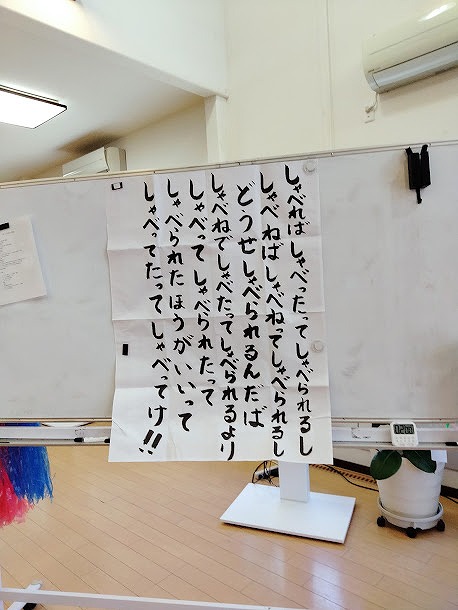 しゃべればしゃべったってしゃべられるし
しゃべねばしゃべねってしゃべられるし
どうせしゃべられるんだば
しゃべねでしゃべたってしゃべられるより
しゃべってしゃべられたって
しゃべられたほうがいいって
しゃべってたってしゃべってけ!!